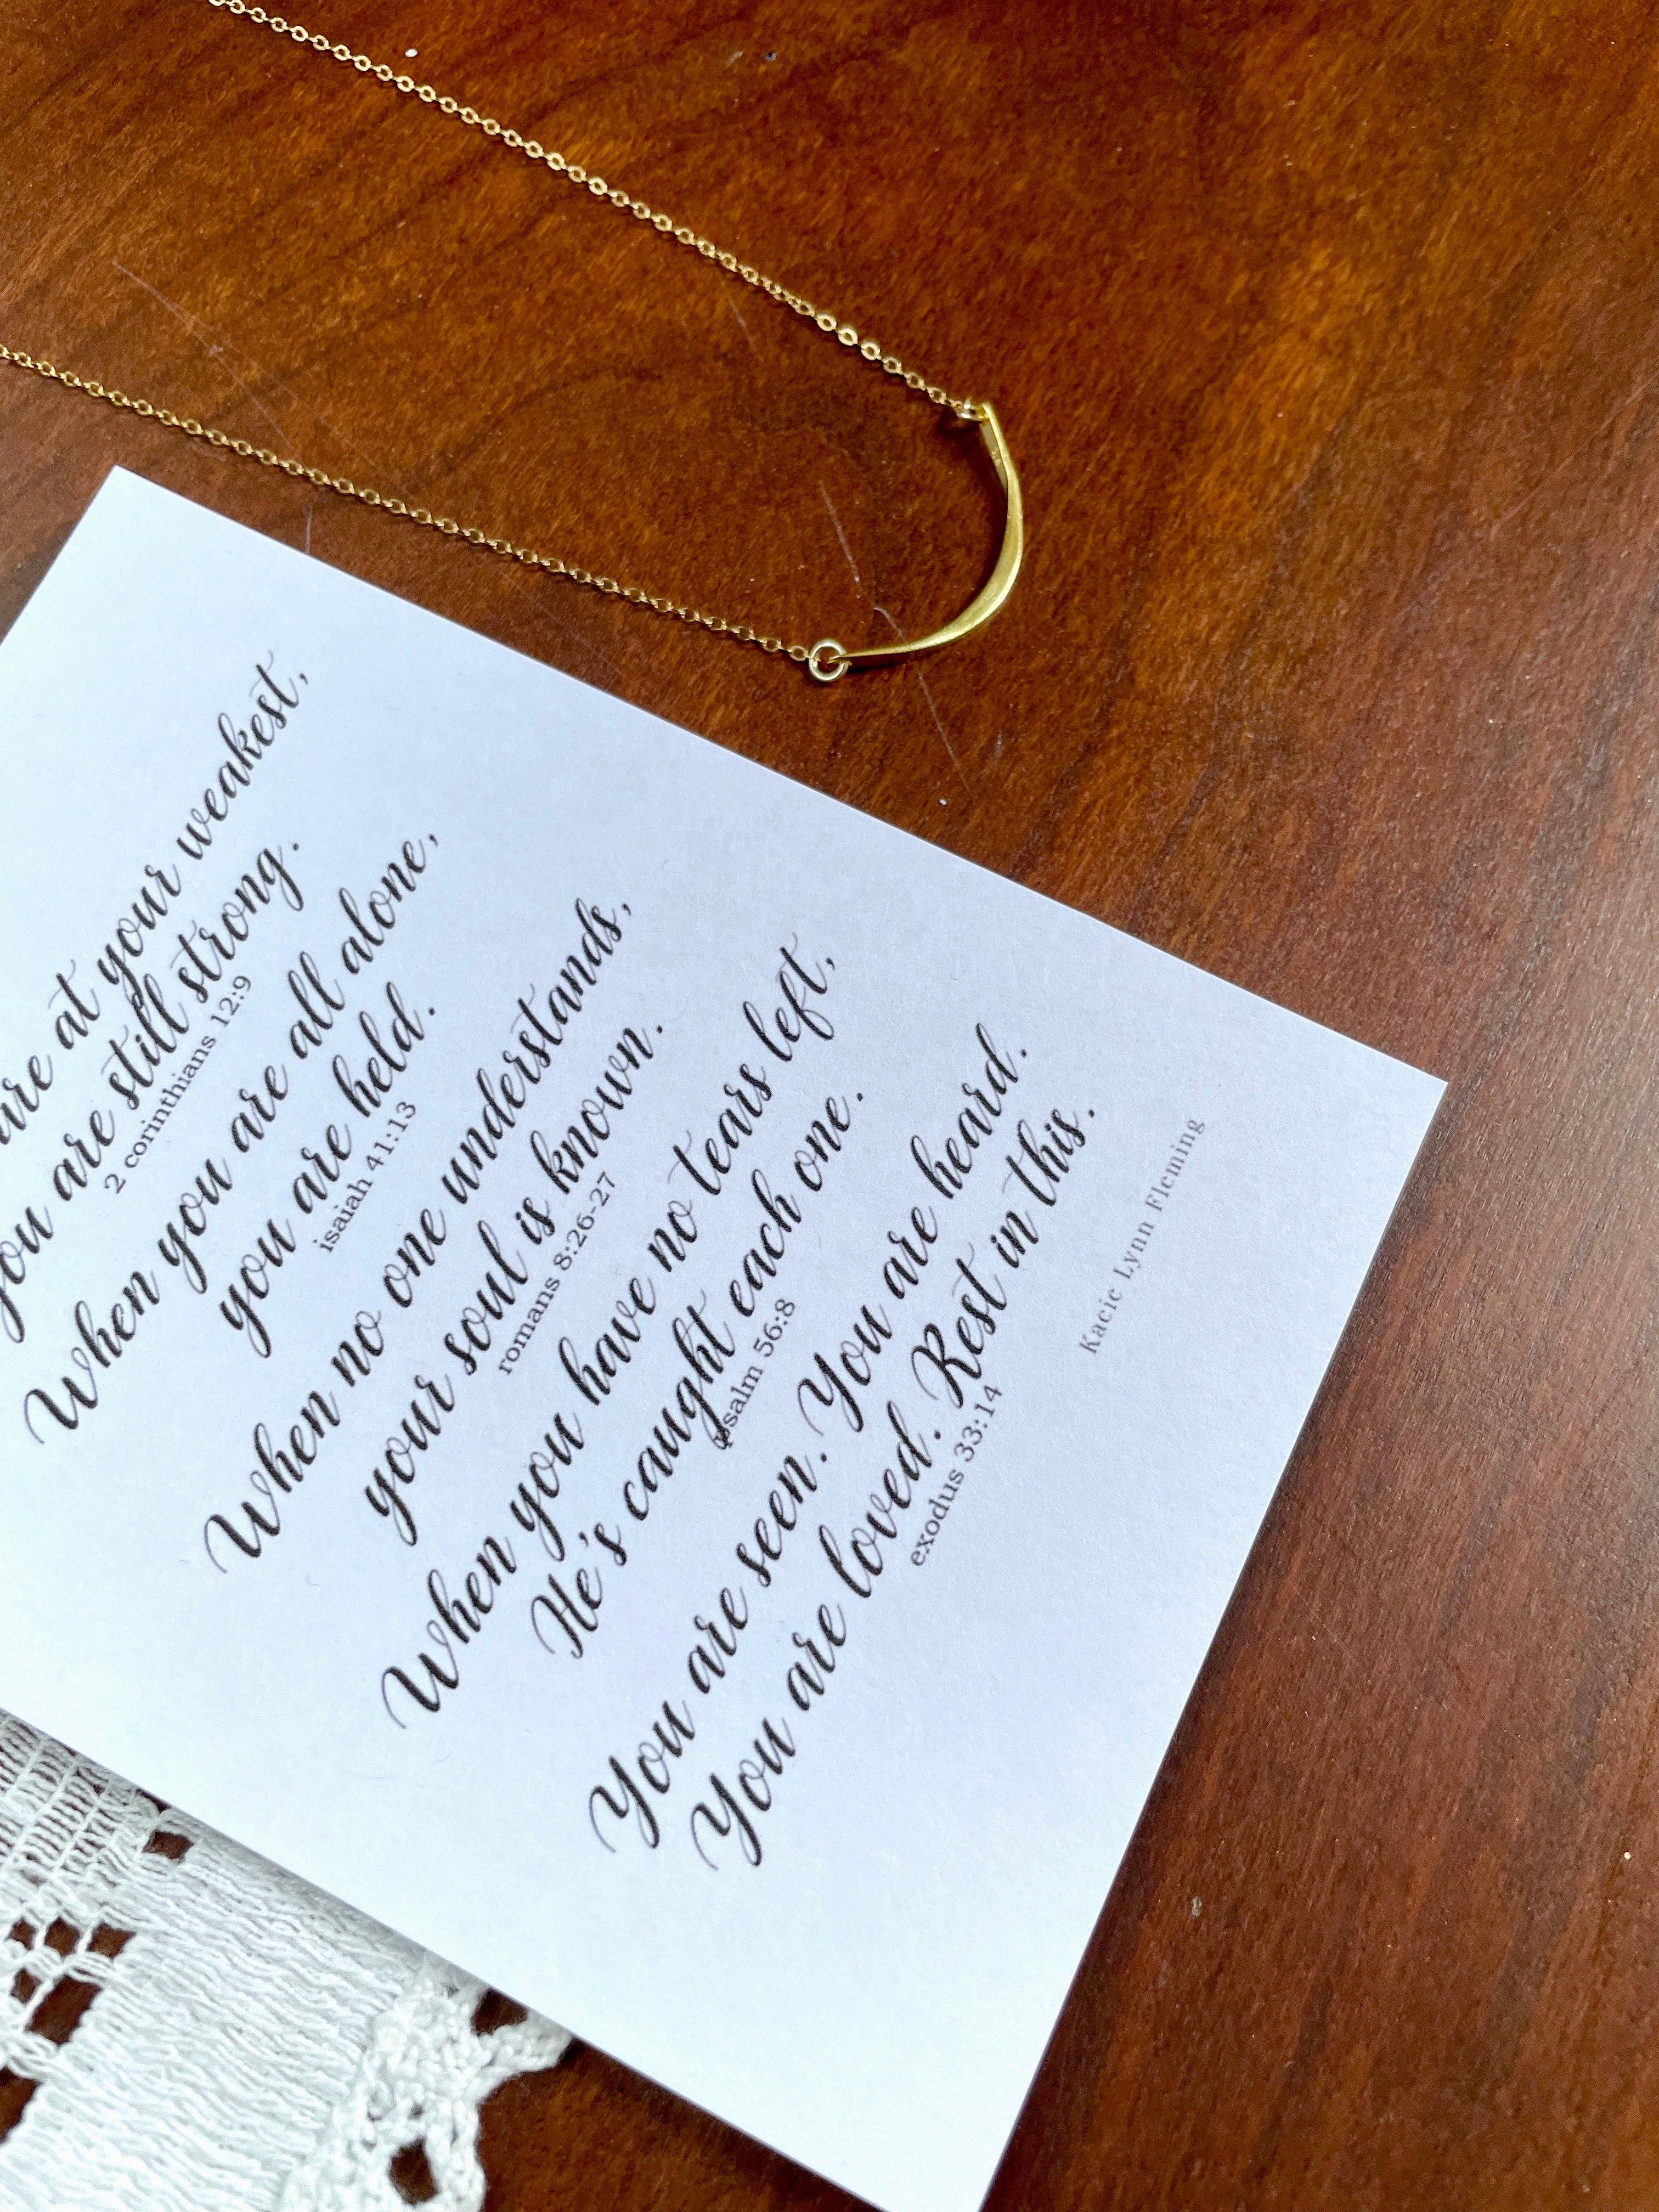 are at your weakest,
you are still strong.
2 corinthians 12:9
When you are all alone,
you are held.
isaiah 41:13
When no one understands,
your soul is known.
romans 8:26-27
When you have no tears left,
He's caught each one.
psalm 56:8
You are seen. You are heard.
You are loved. Rest in this.
exodus 33:14
Kacie Lynn Fleming